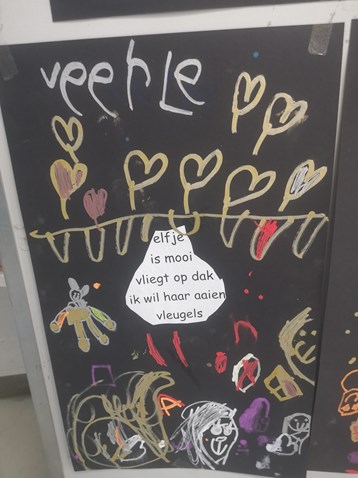 veerle
elfje
is mooi
vliegt op dak
ik wil haar aaien
vleugels